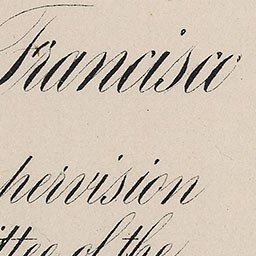 Francisco
pervision
ttee of the